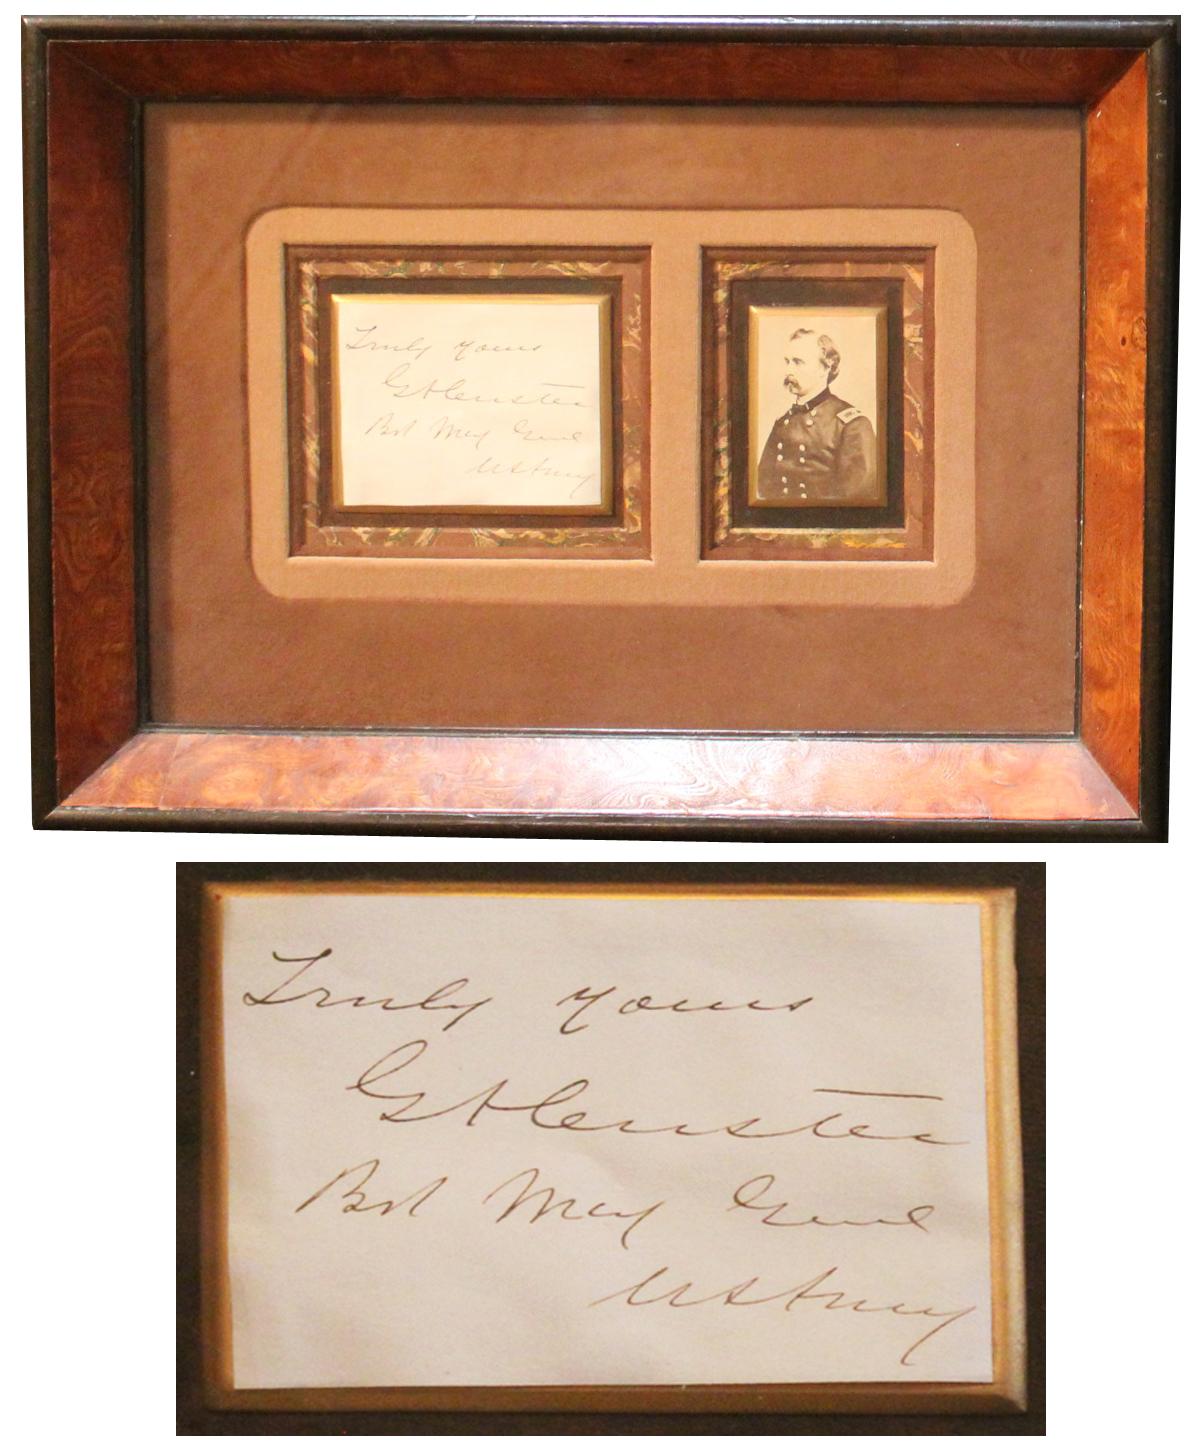 Truly yours
GACuster
Bvt Maj Genl
USArmy
Truly yours
GACuster
Bvt Maj Genl
USArmy